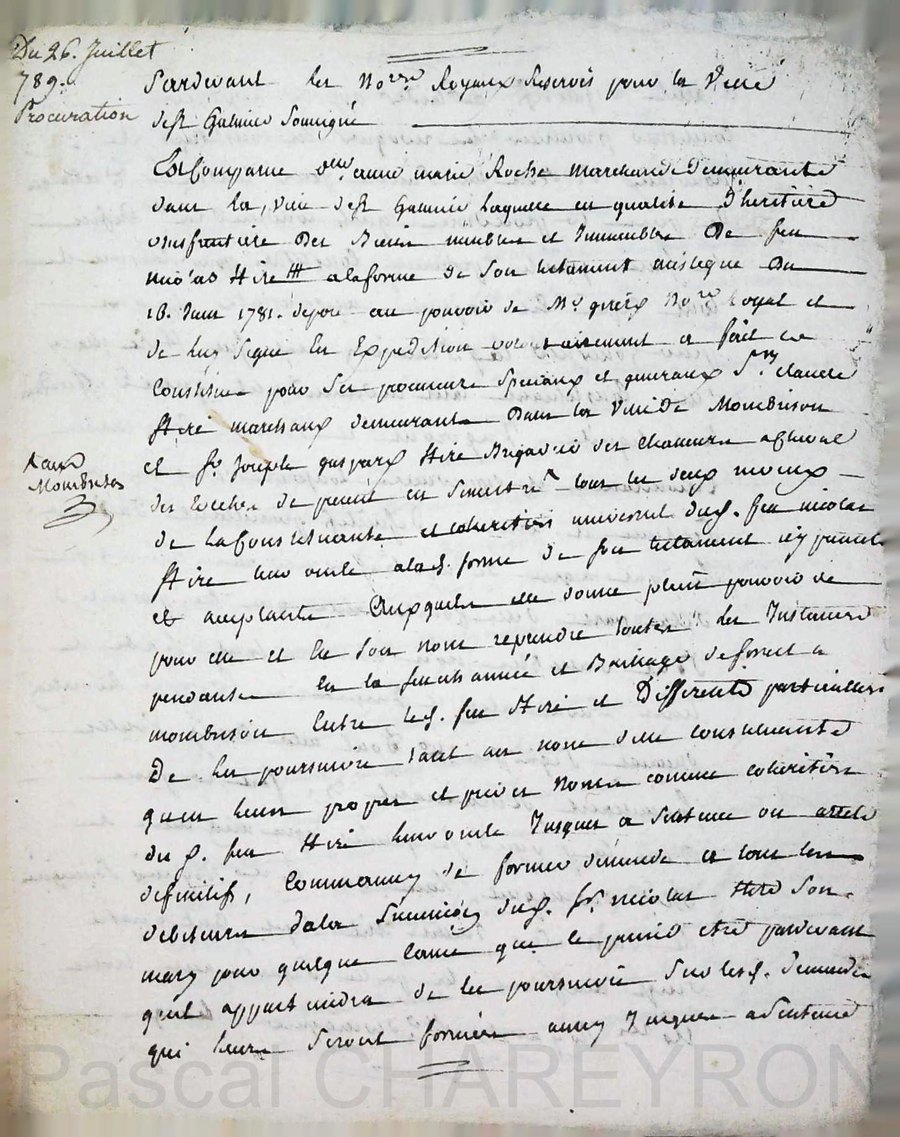 Du 26. Juillet
789.
Procuration
Pardevant les No.res Royaux Reservés pour la Ville
de St Galmier Soussigné
Est Comparue dlle anne marie Roche Marchande Demeurante
dans la ville de St Galmier laquelle en qualité D'heritiere
usufruitiere Des Biens meubles et Immeubles De feu
Nicolas Hire a la forme de Son testament mistique du
1781. deposé au pouvoir de Me No.re Royal et
de luy Signé En Expedition volontairement a fait et
Constitué pour Ses procureurs Speciaux et generaux Sr Claude
Hire marchand demeurant Dans la Ville De Montbrison
et Sr Joseph gaspard Hire Brigadier des Chasseurs a cheval
tous les deux neveux
de la Constituante et coheritiers universels dud. feu nicolas
Hire leur oncle a lad. forme de son testament icy present
et acceptants Auxquels elle donne plein pouvoir de
pour elle et En Son nom reprendre toutes les Instances
pendantes En la Senechaussée et Bailliage de forest a
montbrison Entre led. feu Hire et Differents particuliers
De les poursuivre tant au nom de la constituante
quen leurs propres et privés Noms comme coheritiers
du d. feu Hire leur oncle Jusques a Sentence ou arrets
definitifs, Comme aussy de former demande a tous les
debiteurs de la Succession dud. Sr. nicolas Hire Son
mary pour quelque Cause que ce puisse etre pardevant
quil appartiendra de les poursuivre Sur lesd. demandes
qui leurs Seront formées aussy Jusques a Sentence
Montbrison
Pascal CHAREYRON